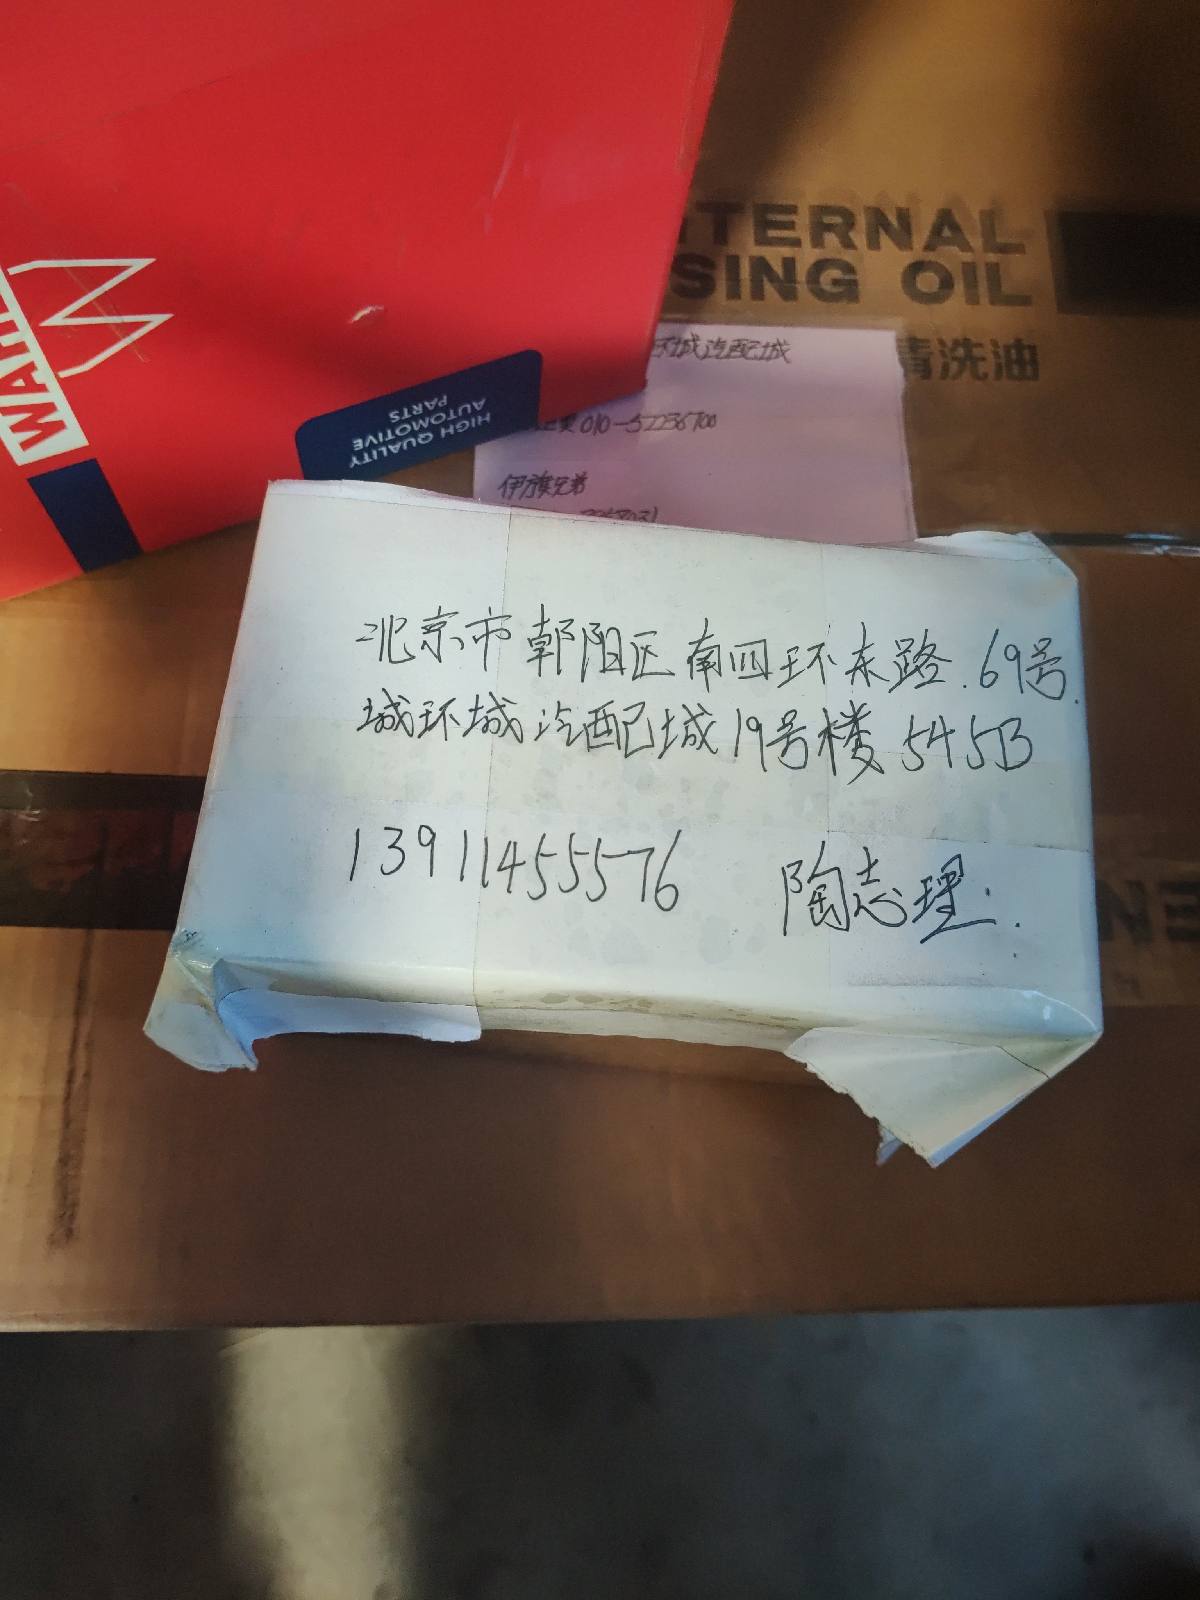 TERNAL
SING OIL
青洗油
WAH
HIGH QUALITY
AUTOMOTIVE
PARTS
环城汽配城
010-52236700
伊旗兄弟
北京市朝阳区南四环东路.69号.
城环城汽配城19号楼545B
13911455576 陶志理.
EN